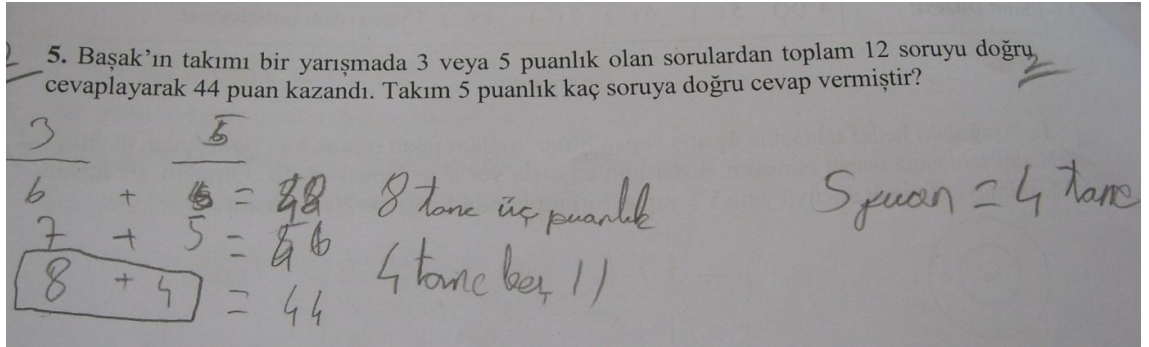 5. Başak'ın takımı bir yarışmada 3 veya 5 puanlık olan sorulardan toplam 12 soruyu doğru
cevaplayarak 44 puan kazandı. Takım 5 puanlık kaç soruya doğru cevap vermiştir?
3 5
6 + 6 = 48 8 tane üç puanlık 5 puan = 4 tane
7 + 5 = 46
8 + 4 = 44 4 tane beş //